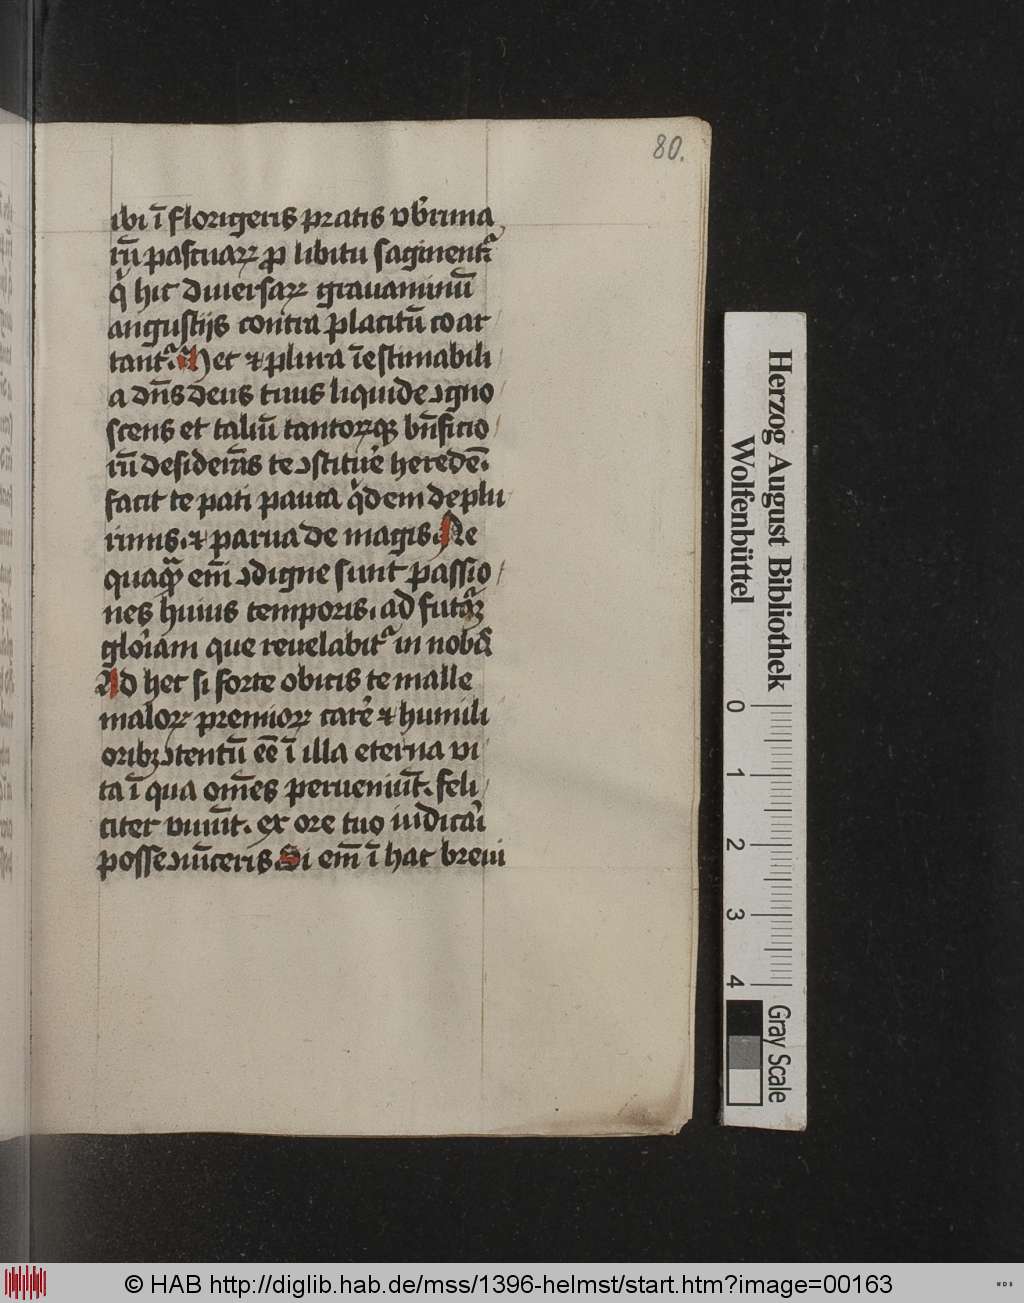 80.
ibi ī florigeris pratis vb̄rima
rū pascuaꝝ ꝓ libitu saginent᷑
q̇ hic diuersaꝝ grauaminū
angustijs contra placitū coar
tant᷑. Hec ⁊ plura īestimabili
a dn̄s deus tuus liquide ꝯgno
scens et taliū tantoꝝqꝫ bn̄ficio
rū desiderās te ꝯstituē heredē.
facit te pati pauca q̇dem de plu
rimis. ⁊ parua de magis. Ne
quaqȝ em̄ ꝯdigne sunt passio
nes huius temporis. ad futꝝ
glor̄iam que reuelabit᷑ in nobꝭ
Ad hec si forte obicis te malle
maloꝝ premioꝝ carē ⁊ humili
oribꝫ ꝯtentū eē ī illa eterna vi
ta ī qua om̄es perueniūt. feli
citer viuūt. ex ore tuo iudicār̄i
posse ꝯuīceris Si em̄ ī hac breui
Herzog August Bibliothek
Wolfenbüttel
0 1 2 3 4
Gray Scale
© HAB http://diglib.hab.de/mss/1396-helmst/start.htm?image=00163